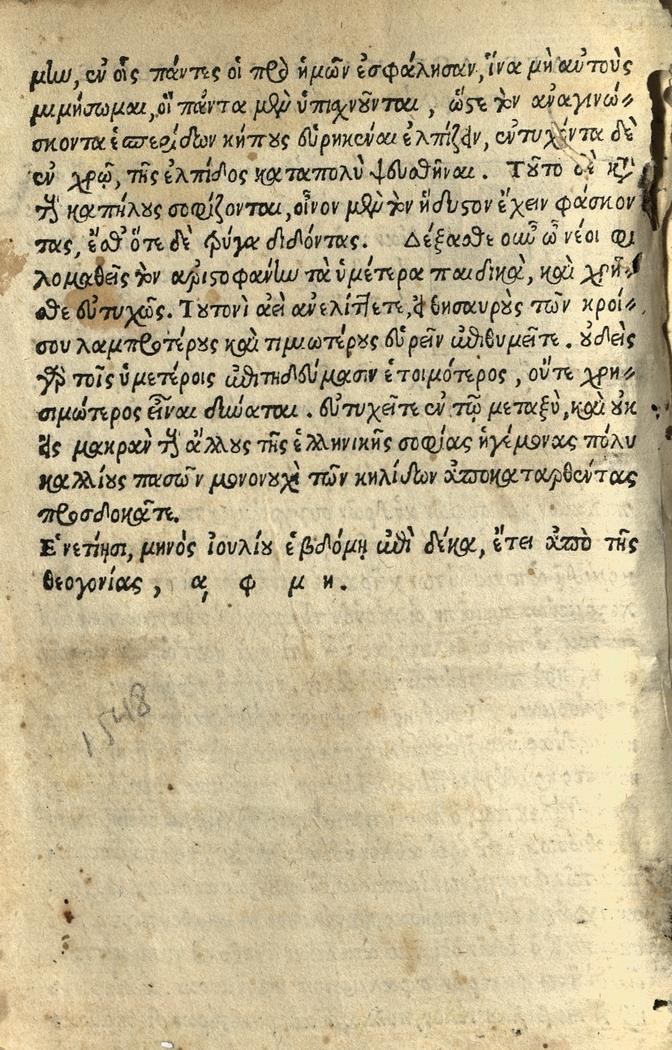 μὴν, ἐν οἷς πάντες οἱ πρὸ ἡμῶν ἐσφάλησαν, ἵνα μὴ αὐτοὺς
μιμήσωμαι, οἳ πάντα μὲν ὑπιχνοῦνται, ὥστε τὸν ἀναγινώ=
σκοντα ἑσπερίδων κήπους εὑρηκέναι ἐλπίζειν, ἐντυχόντα δὲ
ἐν χρῷ, τῆς ἐλπίδος καταπολὺ ψευσθῆναι. Τοῦτο δὲ καὶ
τοὺς καπήλους σοφίζονται, οἶνον μὲν τὸν ἥδυστον ἔχειν φάσκον
τας, ἔσθ' ὅτε δὲ φύγα διδόντας. Δέξασθε οὖν ὦ νέοι φι
λομαθεῖς τὸν ἀριστοφάνην τὰ ὑμέτερα παιδικὰ, καὶ χρῆ=
σθε εὐτυχῶς. Τουτονὶ ἀεὶ ἀνελίττετε, εἰ θησαυροὺς τῶν κροί=
σου λαμπροτέρους καὶ τιμιωτέρους εὑρεῖν ἐπιθυμεῖτε. οὐδεὶς
γὰρ τοῖς ὑμετέροις ἐπιτηδεύμασιν ἑτοιμότερος, οὔτε χρη=
σιμώτερος εἶναι δύναται. εὐτυχεῖτε ἐν τῷ μεταξὺ, καὶ οὐκ
εἰς μακρὰν τοὺς ἄλλους τῆς ἑλληνικῆς σοφίας ἡγέμονας πόλυ
καλλίους πασῶν μονονουχὶ τῶν κηλίδων ἀποκαταρθέντας
προσδοκᾶτε.
Ἐνετίησι, μηνός ἰουλίου ἑβδόμῃ ἐπὶ δέκα, ἔτει ἀπὸ τῆς
θεογονίας, α͵ φ μ η.
1548